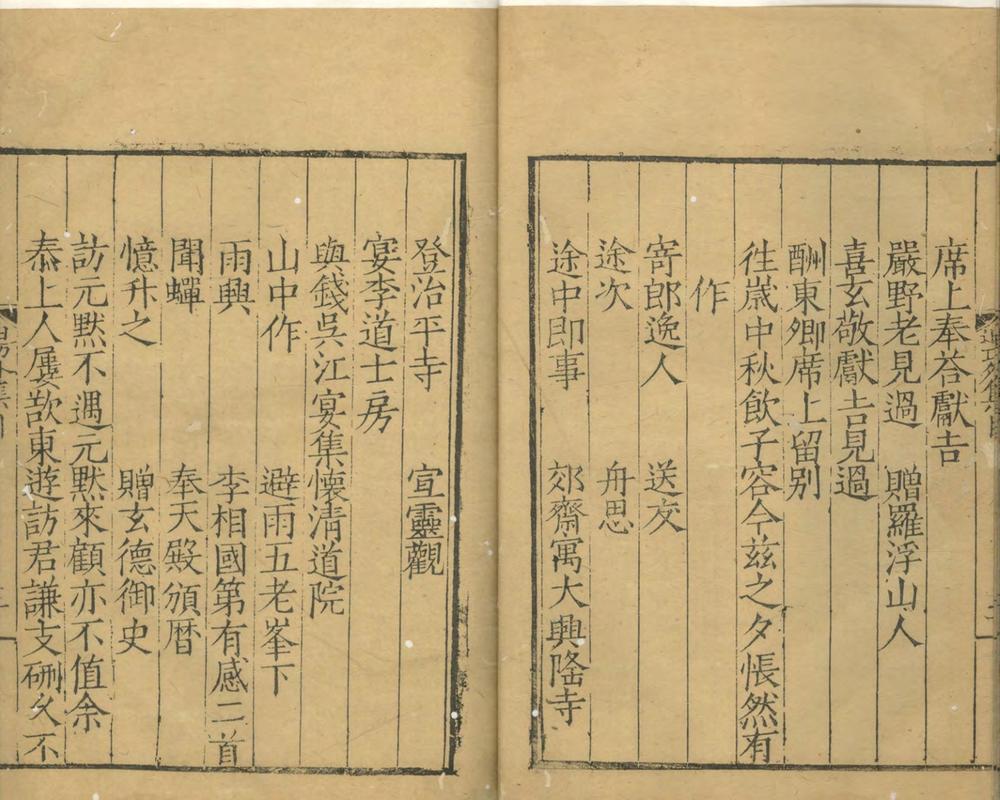 席上奉荅獻吉
嚴野老見過　贈羅浮山人
喜玄敬獻吉見過
酬東卿席上留別
徃歲中秋飲子容今茲之夕悵然有
作
寄郎逸人　送友
途次　舟思
途中即事　郊齋寓大興隆寺
登治平寺　宣靈觀
宴李道士房
與錢吳江宴集懷清道院
山中作　避雨五老峯下
雨興　李相國第有感二首
聞蟬　奉天殿頒曆
憶升之　贈玄德御史
訪元默不遇元默來顧亦不值余
泰上人屢歎東遊訪君謙支硎久不